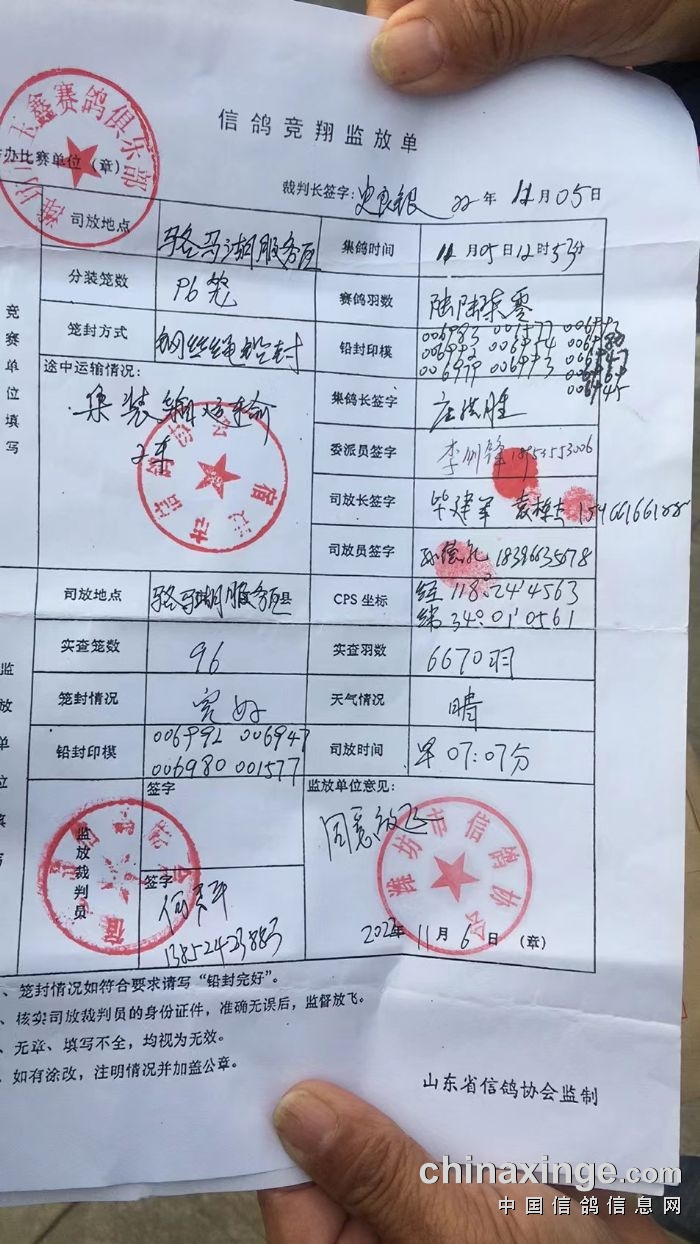 信鸽竞翔监放单
办比赛单位（章）
裁判长签字： 22年 11月05日
竞赛单位填写
司放地点 骆马湖服务区 集鸽时间 11月05日12时53分
分装笼数 96笼 赛鸽羽数 陆陆柒零
笼封方式 钢丝绳铅封 铅封印模 006983 001577 006993
006992 006954 006980
006979 006973 006947
006945
途中运输情况： 集装箱运输
集鸽长签字
委派员签字 18953553006
司放长签字 毕建军
司放员签字 18396635678
司放地点 骆马湖服务区 CPS 坐标 经118°24'4563
纬34°01'0561
实查笼数 96 实查羽数 6670羽
笼封情况 完好 天气情况 晴
铅封印模 006992 006947 司放时间 早07:07分
006980 001577
监放裁判员
签字
签字
13852423883
监放单位意见：
同意放飞
潍坊市信鸽协会
2022年 11月 6日 （章）
、笼封情况如符合要求请写“铅封完好”。
、核实司放裁判员的身份证件，准确无误后，监督放飞。
、无章、填写不全，均视为无效。
、如有涂改，注明情况并加盖公章。
山东省信鸽协会监制
chinaxinge.com
中国信鸽信息网